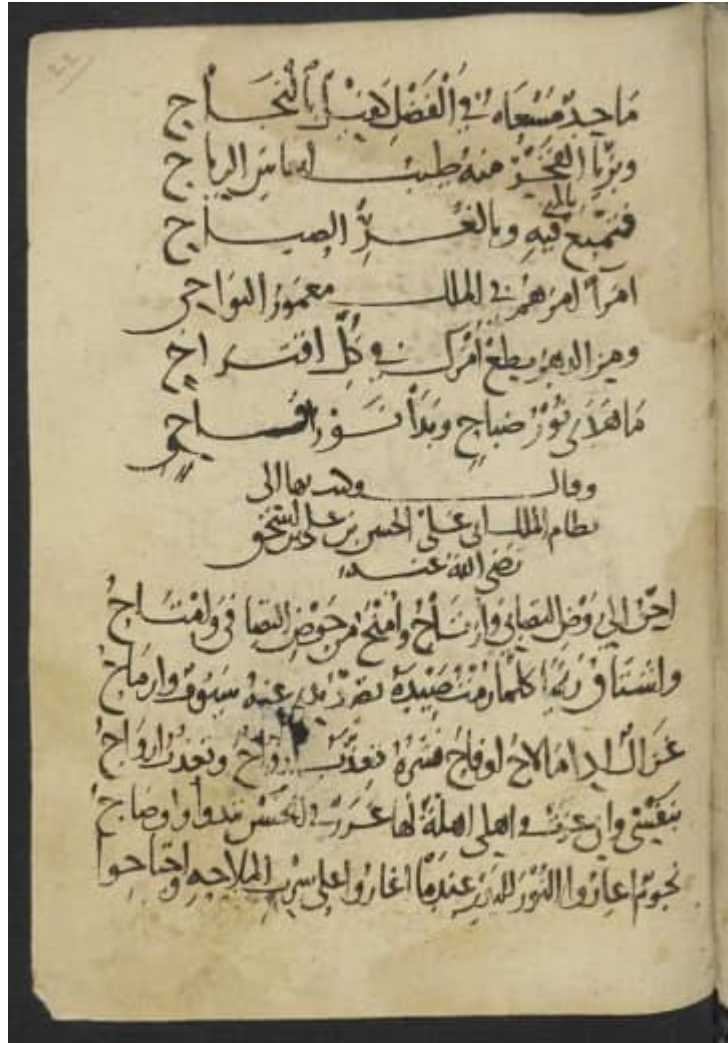 ماجد مسعاه في الفضل كفيل بالنجاح
وبريا الفخر منه طيب انفاس الرياح
فتمتع فيه بالملك وبالغر الصباح
امرا امرهم في الملك معمور النواحي
وهز الدهر يطع امرك في كل اقتراح
ما هلا نور صباح وبدا نور اقاح
وقال وكتب بها الى
نظام الملك ابي علي الحسن بن علي بن اسحق
رضي الله عنه
احن الى روض التصابي وارتاح وامتح من حوض التصافي وامتاح
واشتاق ريما كلما رمت صيده تصد يدي عنه سيوف وارماح
غزال اذا ما لاح او فاح نشره تعذب ارواح وتعذب ارواح
بنفسي وان عزت واهلي اهلة لها غرر في الحسن تبدو واوضاح
نجوم اعاروا النور للبدر عندما اغاروا على سرب الملاحة واجتاحوا